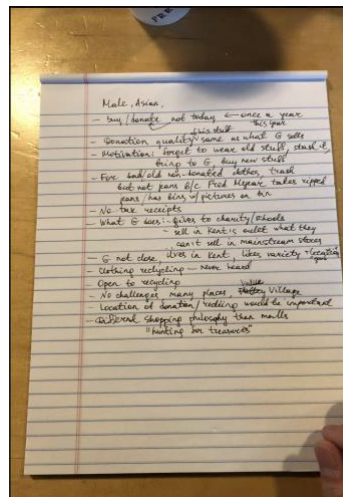 FRE
Male, Asian,
- buy/donate not today ← once a year
this year
- Donation quality same as what G sells
- Motivation: forget to wear old stuff, stash it,
bring to G, buy new stuff
- For bad/old non-donated clothes, trash
but not jeans b/c Fred Meyear takes ripped
jeans/has bins w/ pictures on bin
- No tax receipts
- What G does: - gives to charity/schools
- sell in Kent is outlet what they
can't sell in mainstream stores
- G not close, lives in Kent, likes variety + location
- Clothing recycling - never heard
- Open to recycling
- No challenges, many places, Value Village
- Location of donation/recycling would be important
- Different shopping philosophy than malls
"hunting for treasures"